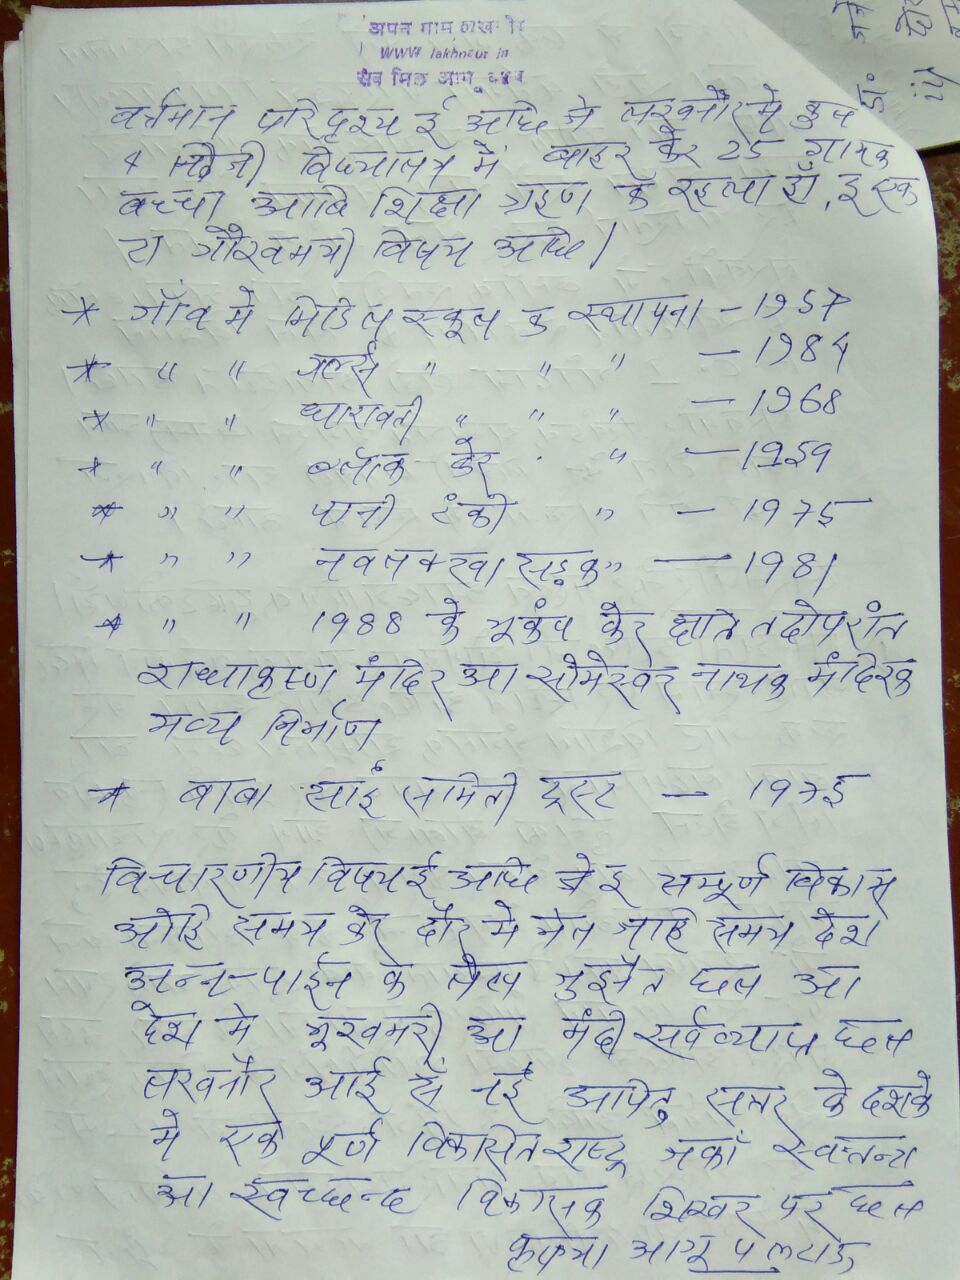 अपन गाम लखनौर
www lakhnaur.in
वर्त्तमान परिदृश्य ई अछि जे लखनौर मे कुल
4 निजी विद्यालय में बाहर केर 25 गामक
बच्चा आबि शिक्षा ग्रहण कें रहला हाँ, इ एक
टा गौरवमयी विषय अछि।
* गाँव मे मिडिल स्कूल क स्थापना – 1957
* " " गर्ल्स " " " – 1984
* " " धारावती " " " – 1968
* " " ब्लॉक केर " " – 1959
* " " पानी टंकी " – 1975
* " " नवलक्खा सड़क " – 1981
* " " 1988 के भूकंप केर क्षति तदोपरांत
राधाकृष्ण मंदिर आ सोमेश्वर नाथक मंदिरक
भव्य निर्माण
* बाबा साईं समिती ट्रस्ट – 1975
विचारणीय विषय ई अछि जे इ सम्पूर्ण विकास
ओहि समय केर दौर मे भेल जाहि समय देश
अन्न-पाईन के लेल जुझैत छल आ
देश मे भूखमरी आ मंदी सर्वव्याप्त छल
लखनौर आई सँ नई अपितु सत्तर के दशके
मे एक पूर्ण विकासित राष्ट्र जकाँ स्वतन्त्र
आ स्वच्छन्द विकासक शिखर पर छल
कृपया आगू पलटाऊ